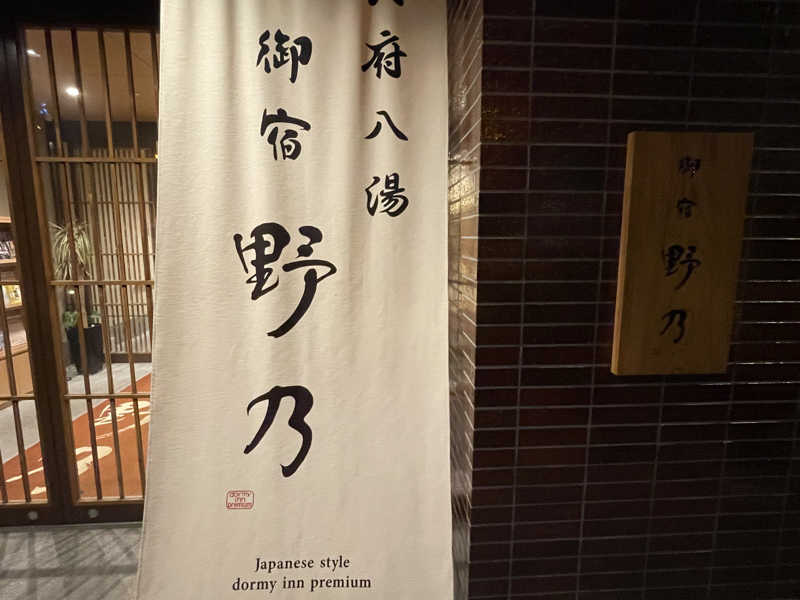 府八湯
御宿
野乃
dormy
inn
premium
Japanese style
dormy inn premium
御宿
野乃